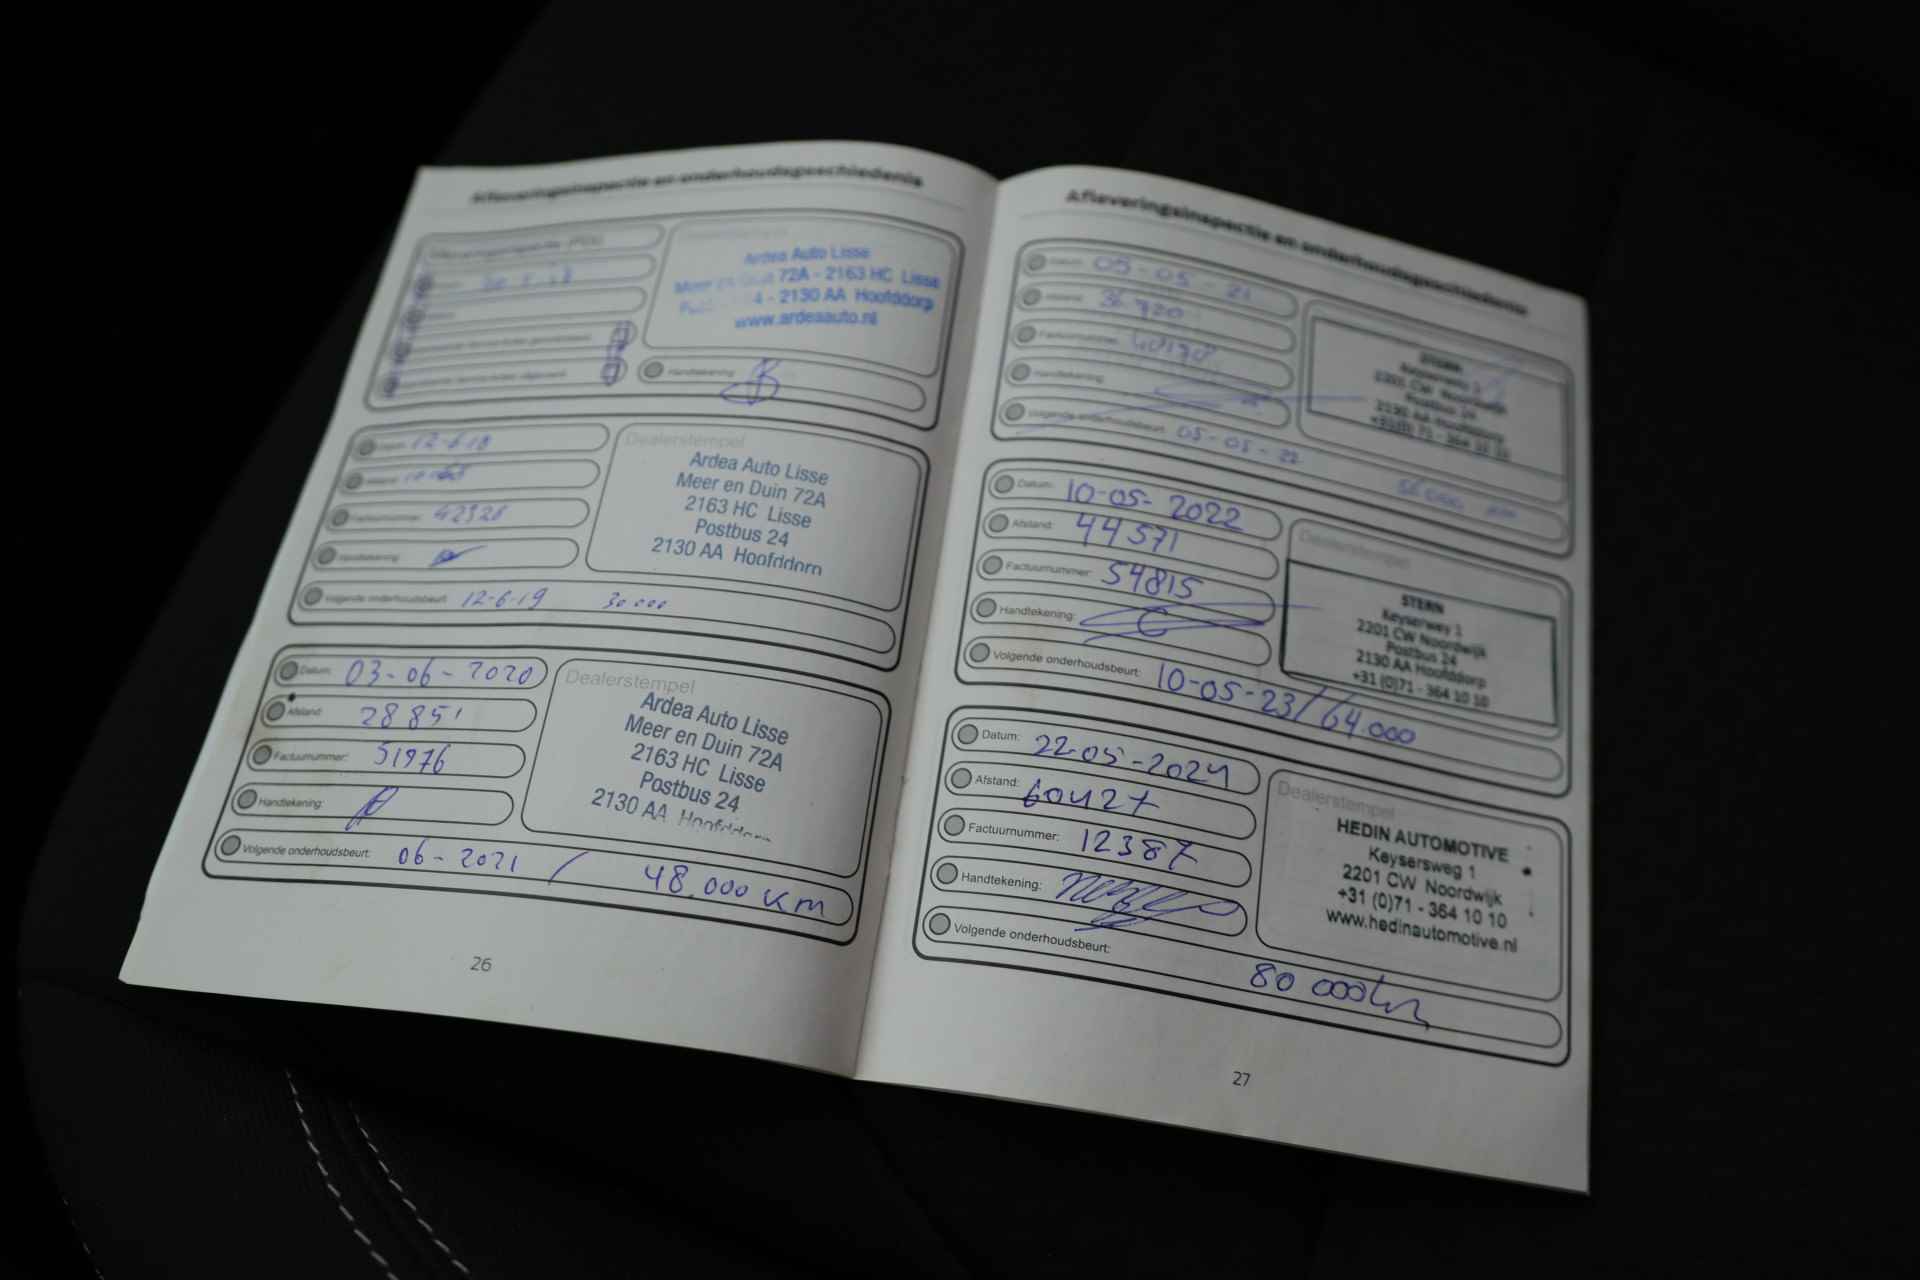 Afleveringsinspectie en onderhoudsgeschiedenis
Dealerstempel
Ardea Auto Lisse
Meer en Duin 72A - 2163 HC Lisse
4 - 2130 AA Hoofddorp
www.ardeaauto.nl
Handtekening:
Datum: 12-6-18
Afstand:
Factuurnummer:
Handtekening:
Volgende onderhoudsbeurt: 12-6-19 30 000
Dealerstempel
Ardea Auto Lisse
Meer en Duin 72A
2163 HC Lisse
Postbus 24
2130 AA Hoofddorp
Datum: 03-06-2020
Afstand: 28851
Factuurnummer: 51976
Handtekening:
Volgende onderhoudsbeurt: 06-2021 / 48.000 km
Dealerstempel
Ardea Auto Lisse
Meer en Duin 72A
2163 HC Lisse
Postbus 24
2130 AA Hoofddorp
26
Afleveringsinspectie en onderhoudsgeschiedenis
Datum: 05-05-21
Afstand: 36720
Factuurnummer:
Handtekening:
Volgende onderhoudsbeurt: 05-05-22
STERN
Keyserweg 1
2201 CW Noordwijk
Postbus 24
2130 AA Hoofddorp
+31(0) 71 - 364 10 10
Datum: 10-05-2022
Afstand: 44571
Factuurnummer: 54815
Handtekening:
Volgende onderhoudsbeurt: 10-05-23/64.000
Dealerstempel
STERN
Keyserweg 1
2201 CW Noordwijk
Postbus 24
2130 AA Hoofddorp
+31 (0)71 - 364 10 10
Datum: 22-05-2024
Afstand: 60427
Factuurnummer: 12387
Handtekening:
Volgende onderhoudsbeurt: 80 000km
Dealerstempel
HEDIN AUTOMOTIVE
Keysersweg 1
2201 CW Noordwijk
+31 (0)71 - 364 10 10
www.hedinautomotive.nl
27